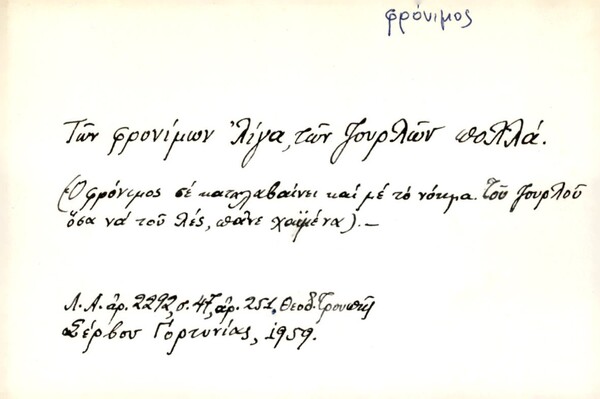 φρόνιμος
Τῶν φρονίμων λίγα, τῶν ζουρλῶν πολλά.
(Ὁ φρόνιμος σέ καταλαβαίνει καί μέ τό νόημα. Τοῦ ζουρλοῦ
ὅσα νά τοῦ λές, πᾶνε χαϊμένα).—
Λ.Α. ἀρ. 2292, σ. 47, ἀρ. 251, Θεοδ. Τρουπῆς
Σέρβου Γορτυνίας, 1959.